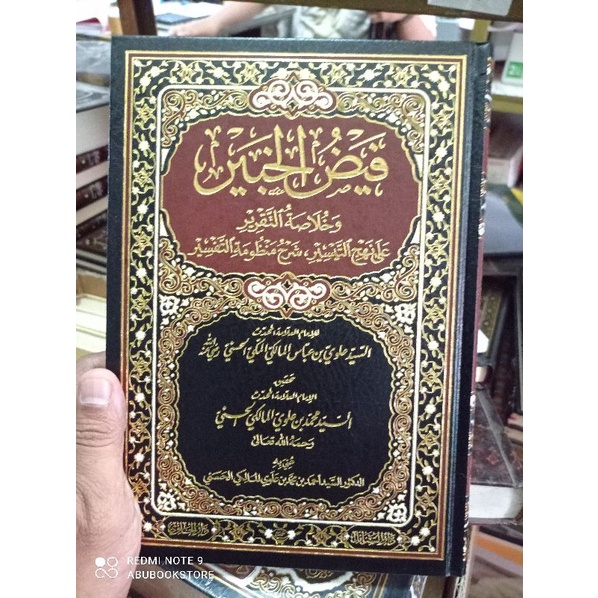 فيض الخبير
وخلاصة التقرير
على نهج التيسير، شرح منظومة التفسير
للإمام العلامة المحدث
السيد علوي بن عباس المالكي المكي الحسني رضي الله عنه
تحقيق
الإمام العلامة المحدث
السيد محمد بن علوي المالكي الحسني
رحمه الله تعالى
عني به
الدكتور السيد أحمد بن محمد بن علوي المالكي الحسني
REDMI NOTE 9
ABUBOOKSTORE